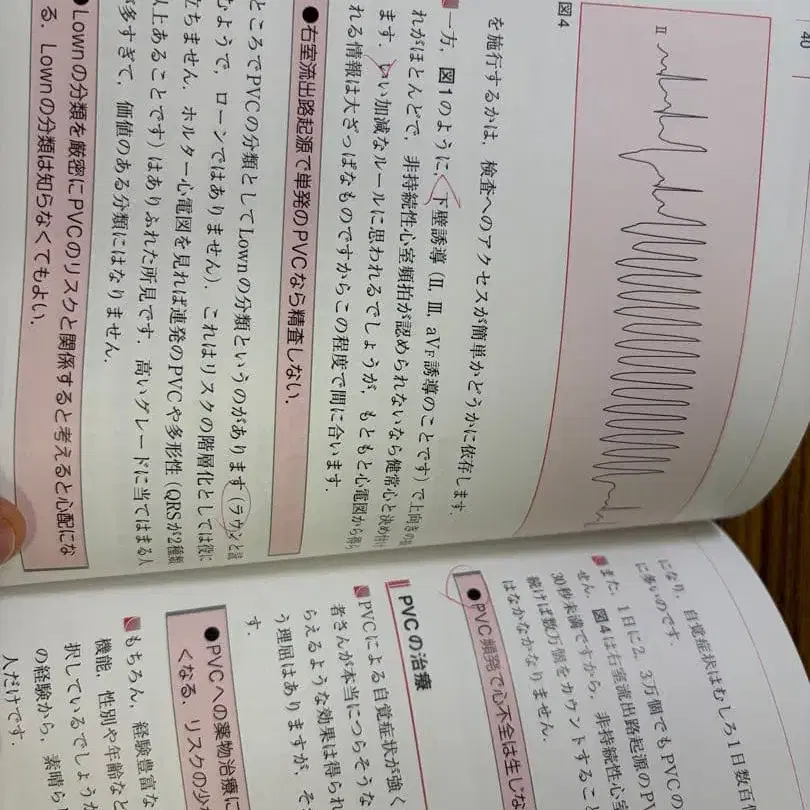 40
II
図4
を施行するかは，検査へのアクセスが簡単かどうかに依存します．
一方，図1のように，下壁誘導（II，III，aVF誘導のことです）で上向きの
れがほとんどで，非持続性心室頻拍が認められないなら健常心と決め付け
ます．いい加減なルールに思われるでしょうが，もともと心電図から得ら
れる情報は大ざっぱなものですからこの程度で間に合います．
●右室流出路起源で単発のPVCなら精査しない．
ところでPVCの分類としてLownの分類というのがあります（ラウンと読
むようで，ローンではありません）．これはリスクの階層化としては役に
立ちません．ホルター心電図を見れば連発のPVCや多形性（QRSが2種類
以上あることです）はありふれた所見です．高いグレードに当てはまる人
が多すぎて，価値のある分類にはなりません．
●Lownの分類を厳密にPVCのリスクと関係すると考えると心配にな
る．Lownの分類は知らなくてもよい．
になり，自覚症状はむしろ1日数百
に多いのです．
また，1日に2，3万個でもPVCの
せん．図4は右室流出路起源のPV
30秒未満ですから，非持続性心室
続けば数万個をカウントすること
はなかなかなりません．
●PVC頻発で心不全は生じな
PVCの治療
PVCによる自覚症状が強く
者さんが本当につらそうな
らえるような効果は得られ
う理屈はありますが，そ
す．
●PVCへの薬物治療に
くなる．リスクの少
もちろん，経験豊富な
機能，性別や年齢など
択しているでしょうが
の経験から，素晴らし
人だけです．